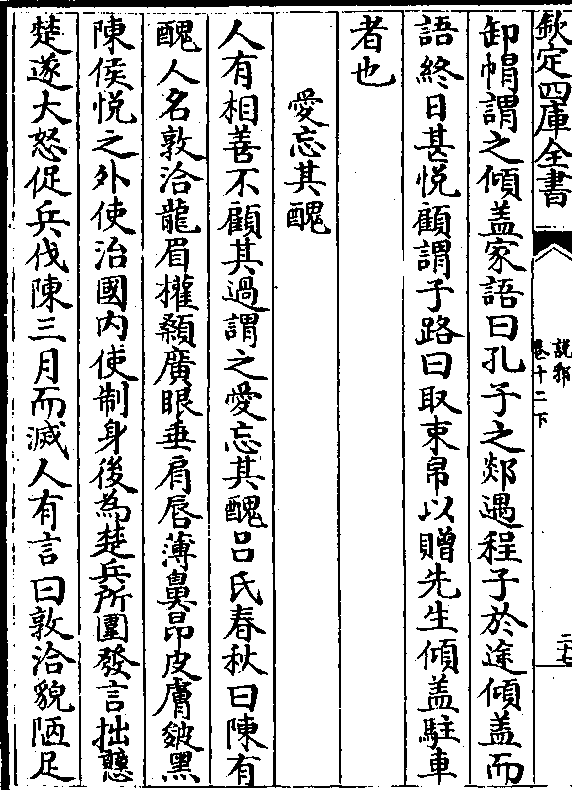 欽定四庫全書
説郛
卷十二下
二十七
卸㡌謂之傾盖家語曰孔子之郯遇程子於途傾盖而
語終日甚悦顧謂子路曰取束帛以贈先生傾盖駐車
者也
愛忘其醜
人有相善不顧其過謂之愛忘其醜吕氏春秋曰陳有
醜人名敦洽龍眉權顙廣眼垂肩唇薄鼻昂皮膚皴黑
陳侯悦之外使治國内使制身後為楚兵所圍發言拙戅
楚遂大怒促兵伐陳三月而滅人有言曰敦洽貌陋足